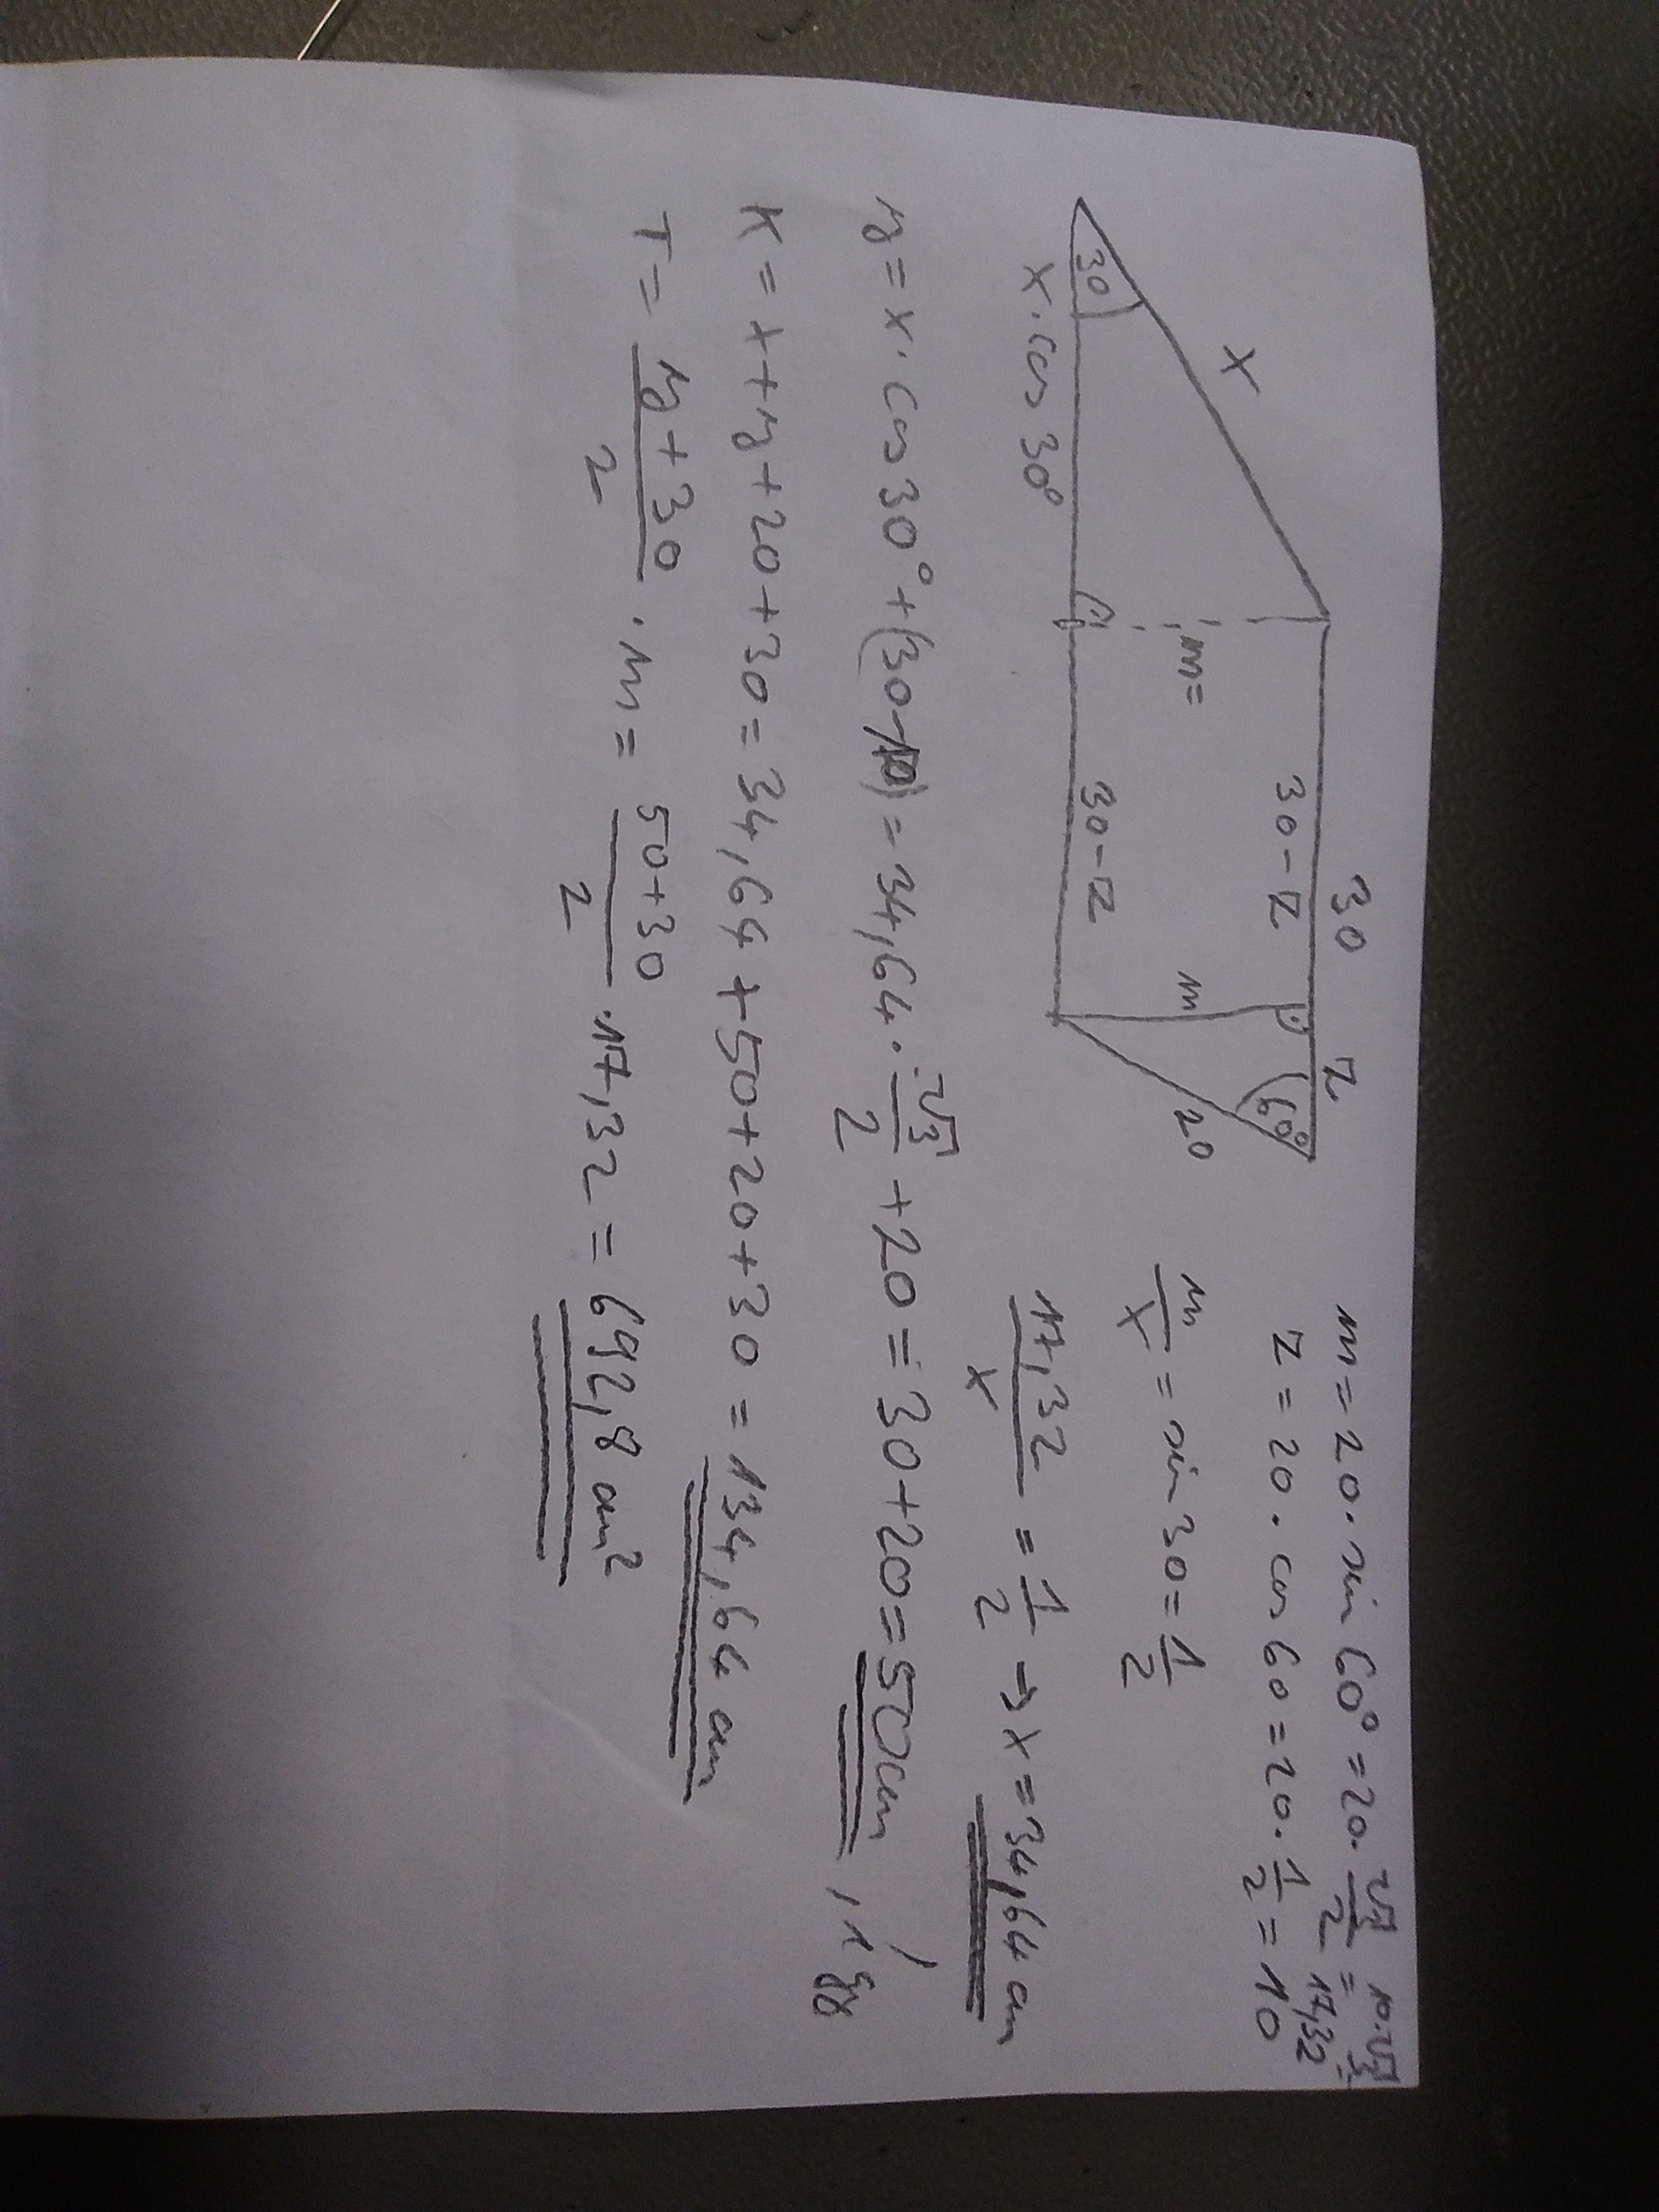 30
z
x
30-z
60°
30
m=
m
20
30-z
x·cos 30°
m = 20·sin 60° = 20·√3/2 = 10·√3 = 17,32
z = 20·cos 60 = 20·1/2 = 10
m/x = sin 30 = 1/2
17,32/x = 1/2 → x = 34,64 cm
y = x·cos 30° + (30-10) = 34,64·√3/2 + 20 = 30+20 = 50cm
K = x+y+20+30 = 34,64+50+20+30 = 134,64 cm
T = y+30/2 · m = 50+30/2 ·17,32 = 692,8 cm²